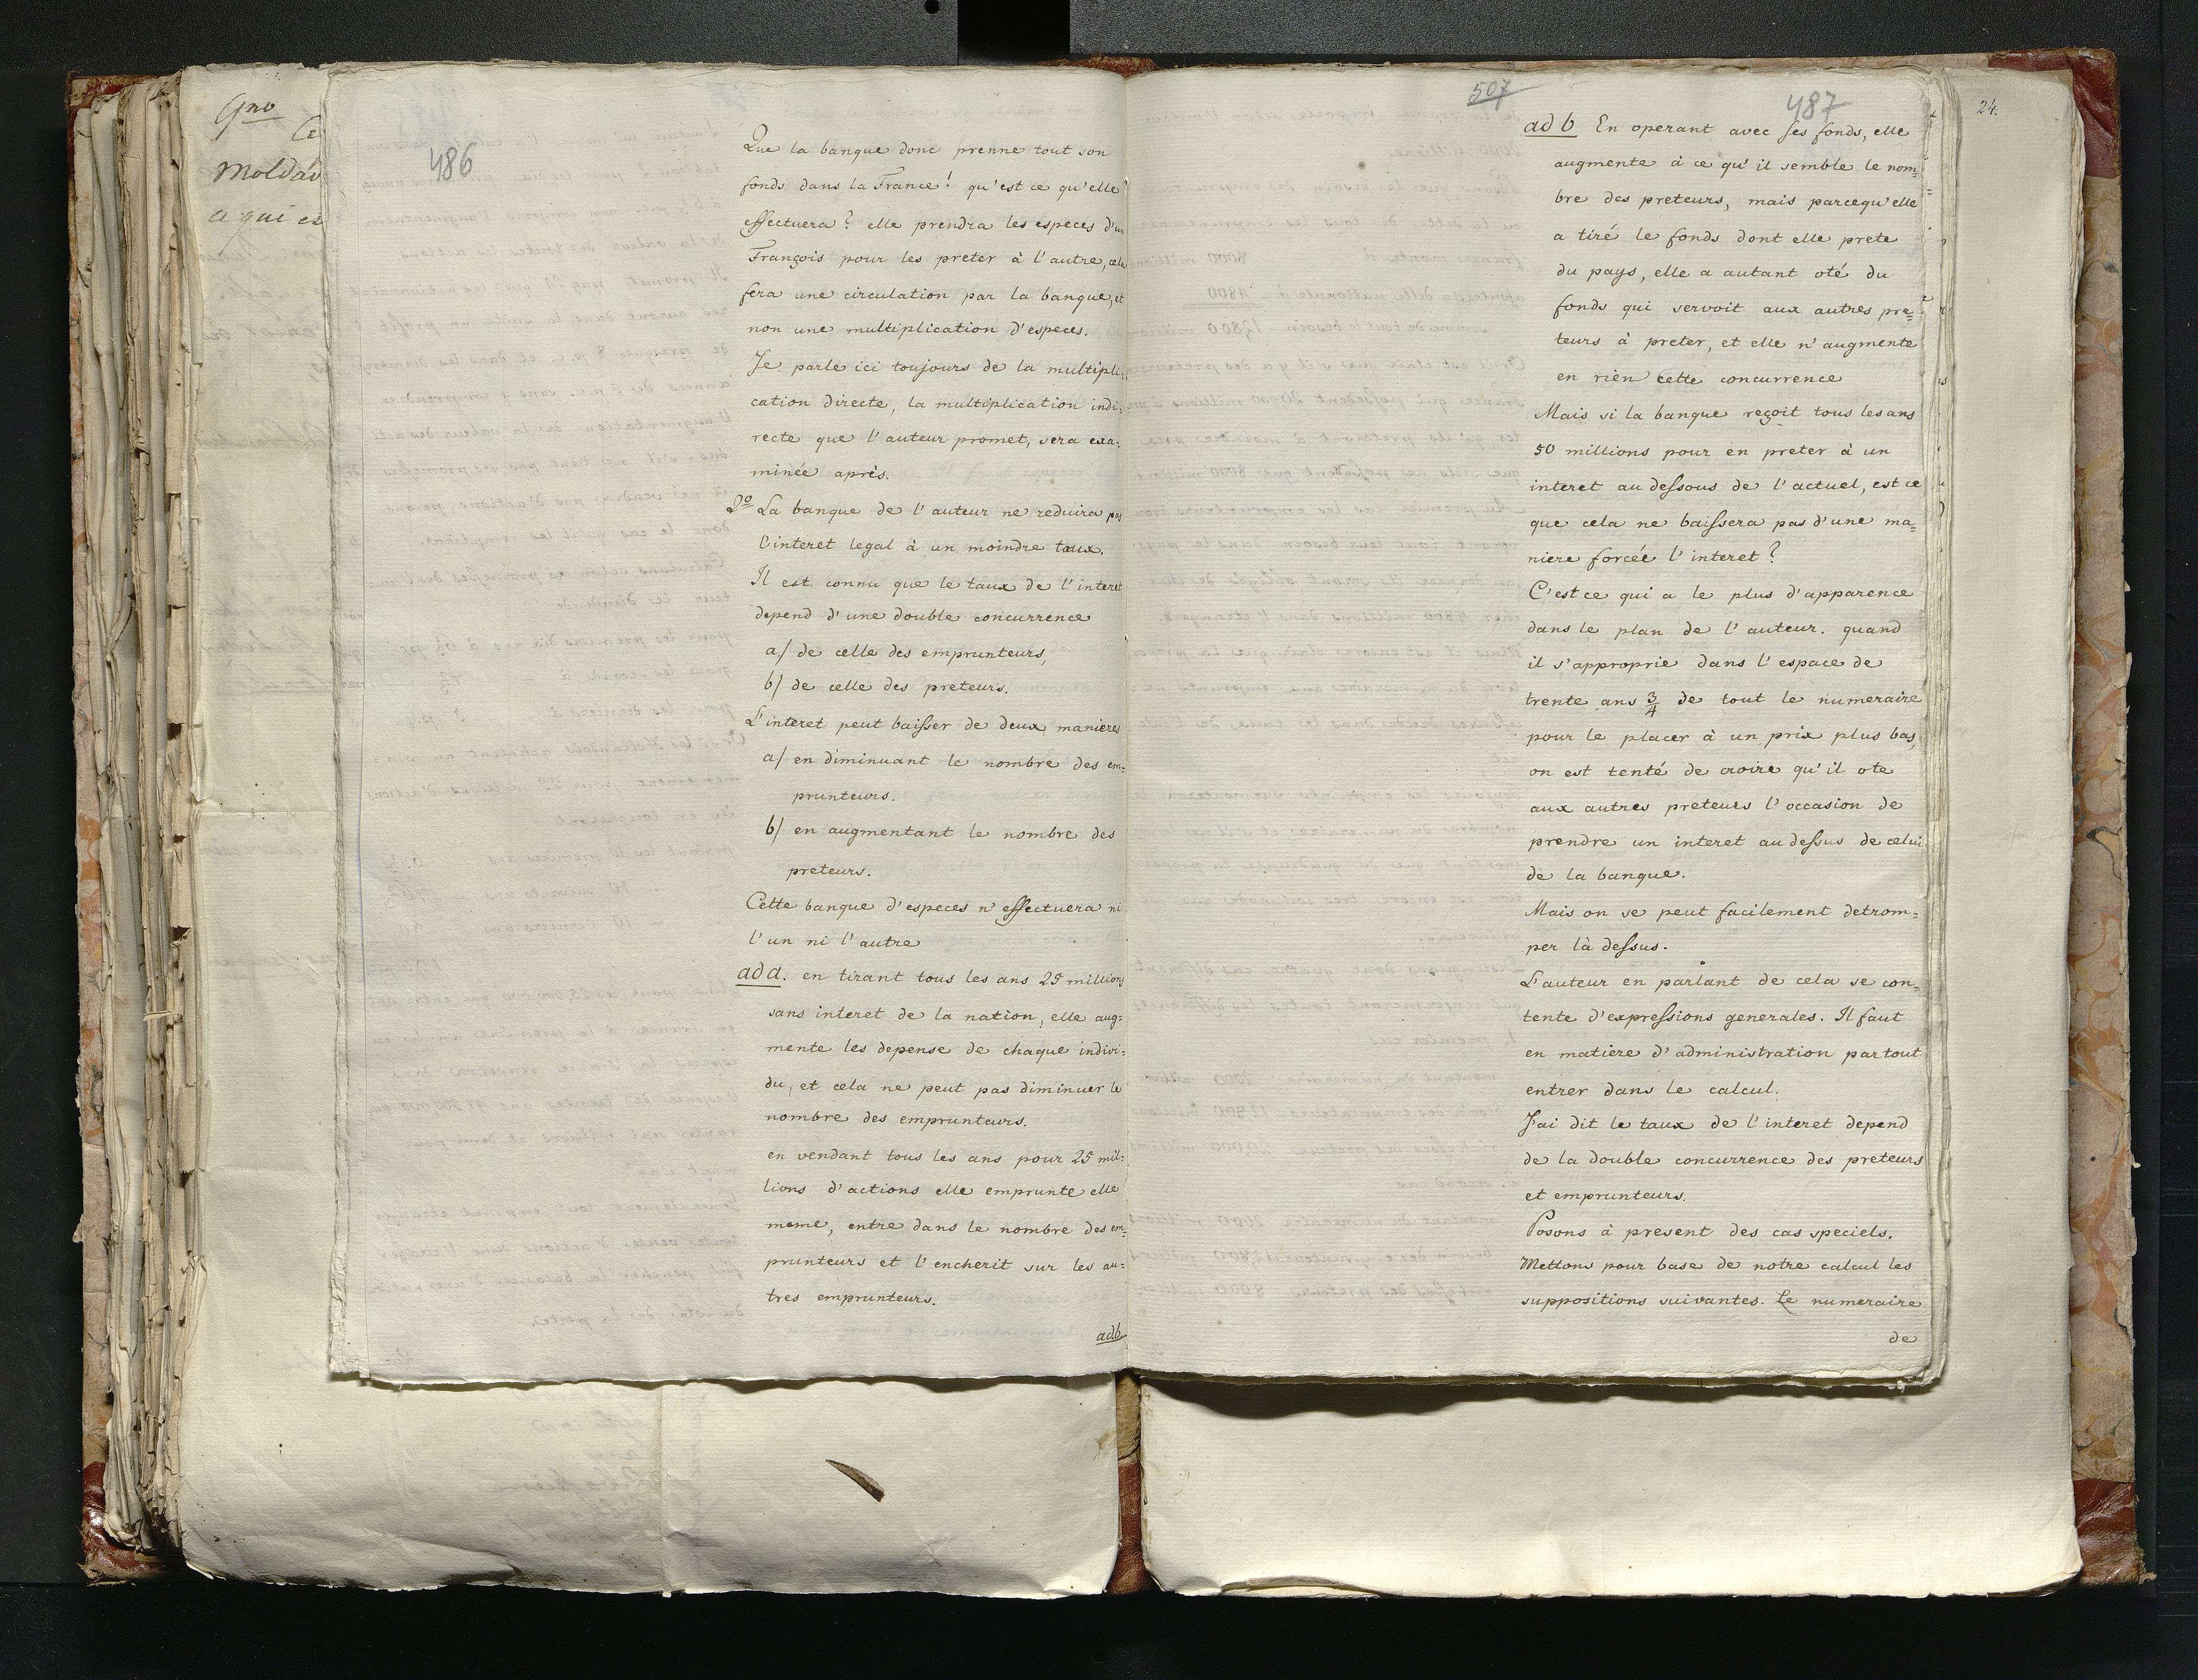 Gno
Ce
Moldav
a qui es
486
Que la banque donc prenne tout son
fonds dans la France! qu'est ce qu'elle
effectuera? elle prendra les especes d'un
François pour les preter à l'autre, cela
fera une circulation par la banque, et
non une multiplication d'especes.
Je parle ici toujours de la multipli=
cation directe, la multiplication indi=
recte que l'auteur promet, sera exa=
minée après.
2o La banque de l'auteur ne reduira pas
l'interet legal à un moindre taux.
Il est connu que le taux de l'interet
depend d'une double concurrence
a/ de celle des emprunteurs,
b/ de celle des preteurs.
L'interet peut baisser de deux manieres
a/ en diminuant le nombre des em=
prunteurs.
b/ en augmentant le nombre des
preteurs.
Cette banque d'especes n'effectuera ni
l'un ni l'autre
ad a. en tirant tous les ans 25 millions
sans interet de la nation, elle aug=
mente les depense de chaque indivi=
du, et cela ne peut pas diminuer le
nombre des emprunteurs.
en vendant tous les ans pour 25 mil=
lions d'actions elle emprunte elle
meme, entre dans le nombre des em=
prunteurs et l'encherit sur les au=
tres emprunteurs.
ad b
507
487
24.
ad b En operant avec ses fonds, elle
augmente à ce qu'il semble le nom=
bre des preteurs, mais parcequ'elle
a tiré le fonds dont elle prete
du pays, elle a autant oté du
fonds qui servoit aux autres pre=
teurs à preter, et elle n'augmente
en rien cette concurrence
Mais si la banque reçoit tous les ans
50 millions pour en preter à un
interet au dessous de l'actuel, est ce
que cela ne baissera pas d'une ma=
niere forcée l'interet?
C'est ce qui a le plus d'apparence
dans le plan de l'auteur. quand
il s'approprie dans l'espace de
trente ans 3/4 de tout le numeraire
pour le placer à un prix plus bas,
on est tenté de croire qu'il ote
aux autres preteurs l'occasion de
prendre un interet au dessus de celui
de la banque.
Mais on se peut facilement detrom=
per là dessus.
L'auteur en parlant de cela se con=
tente d'expressions generales. Il faut
en matiere d'administration partout
entrer dans le calcul.
J'ai dit le taux de l'interet depend
de la double concurrence des preteurs
et emprunteurs.
Posons à present des cas speciels.
Mettons pour base de notre calcul les
suppositions suivantes. Le numeraire
de